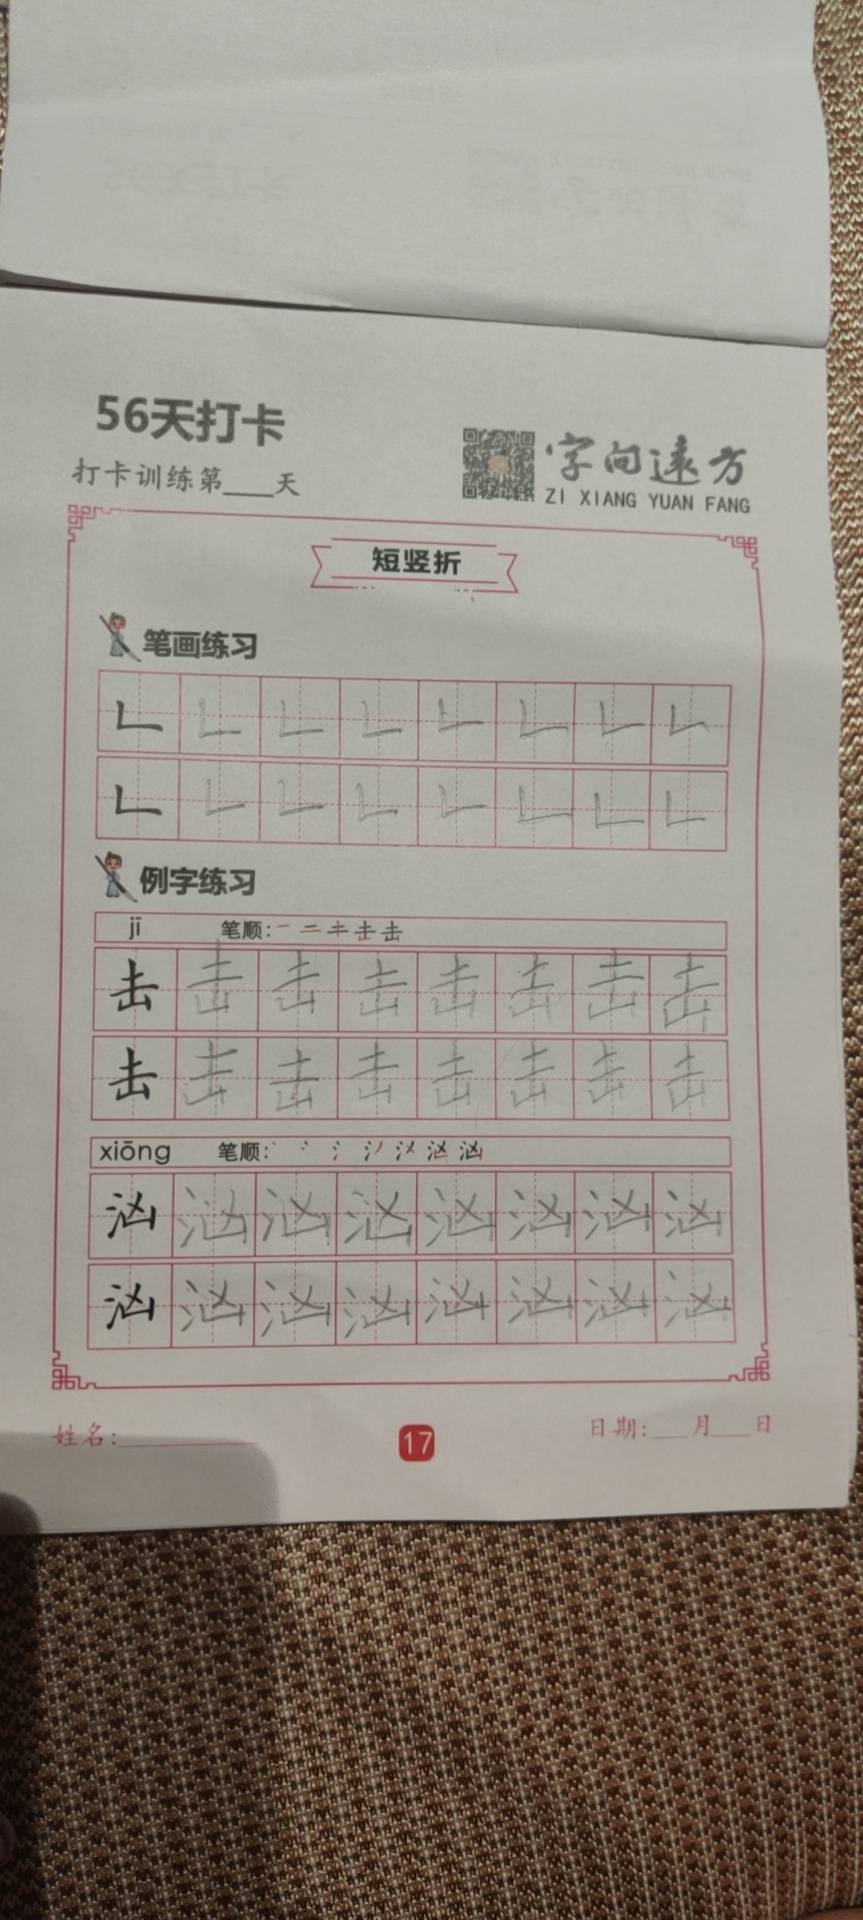 56天打卡
打卡训练第___天
字向远方
ZI XIANG YUAN FANG
短竖折
笔画练习
例字练习
jī 笔顺:
击 击 击 击 击 击 击 击
击 击 击 击 击 击 击 击
xiōng 笔顺:
汹 汹 汹 汹 汹 汹 汹 汹
汹 汹 汹 汹 汹 汹 汹 汹
姓名:
17
日期:___月___日